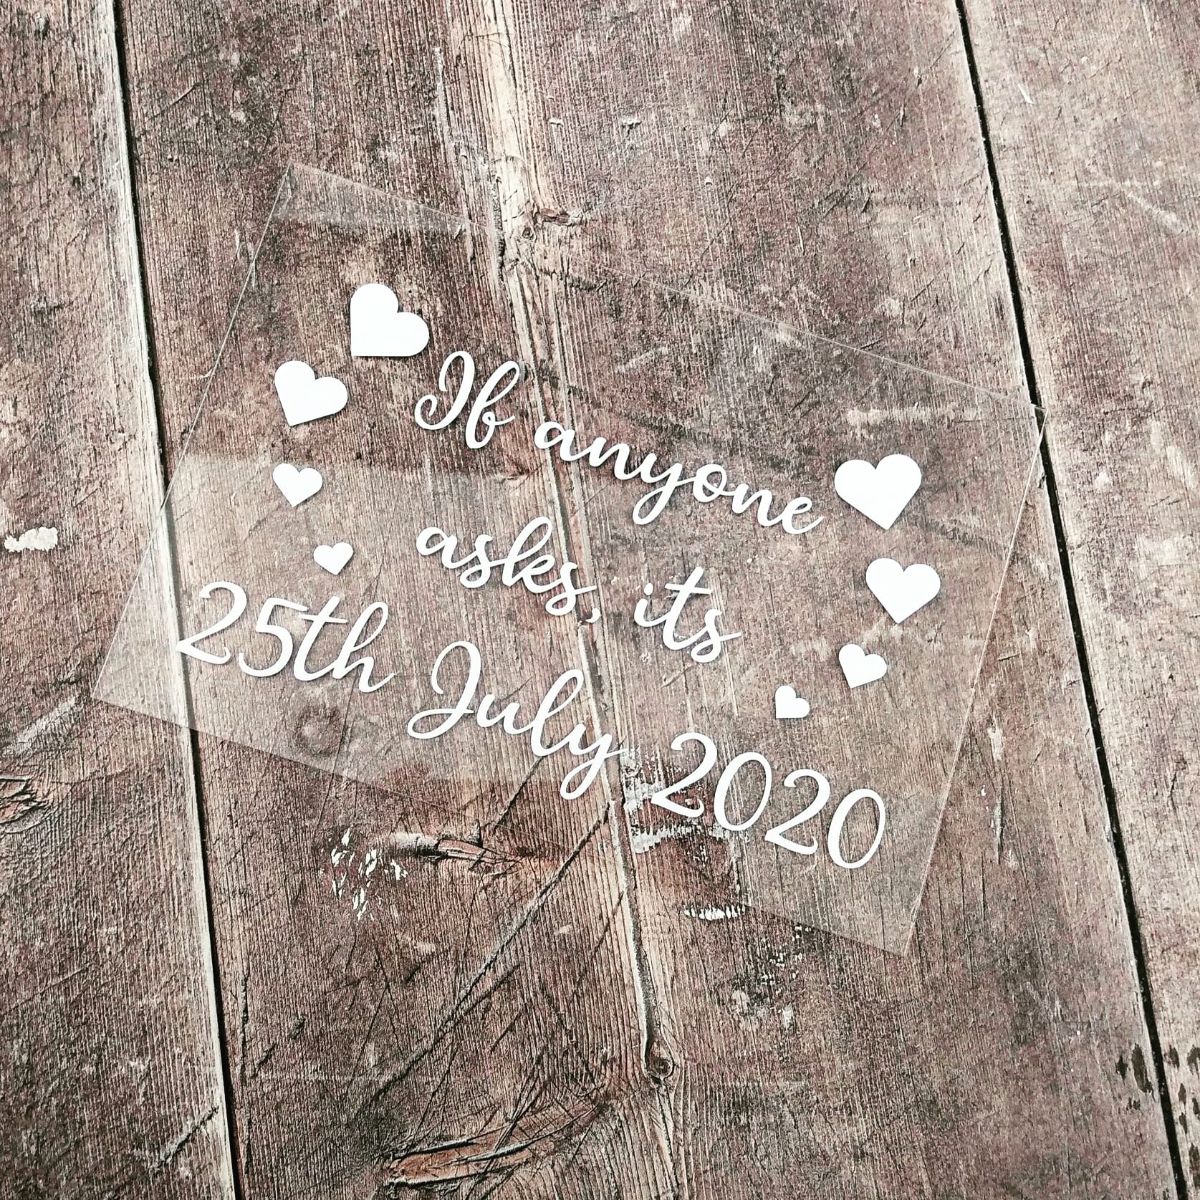 If anyone
asks, its
25th July 2020